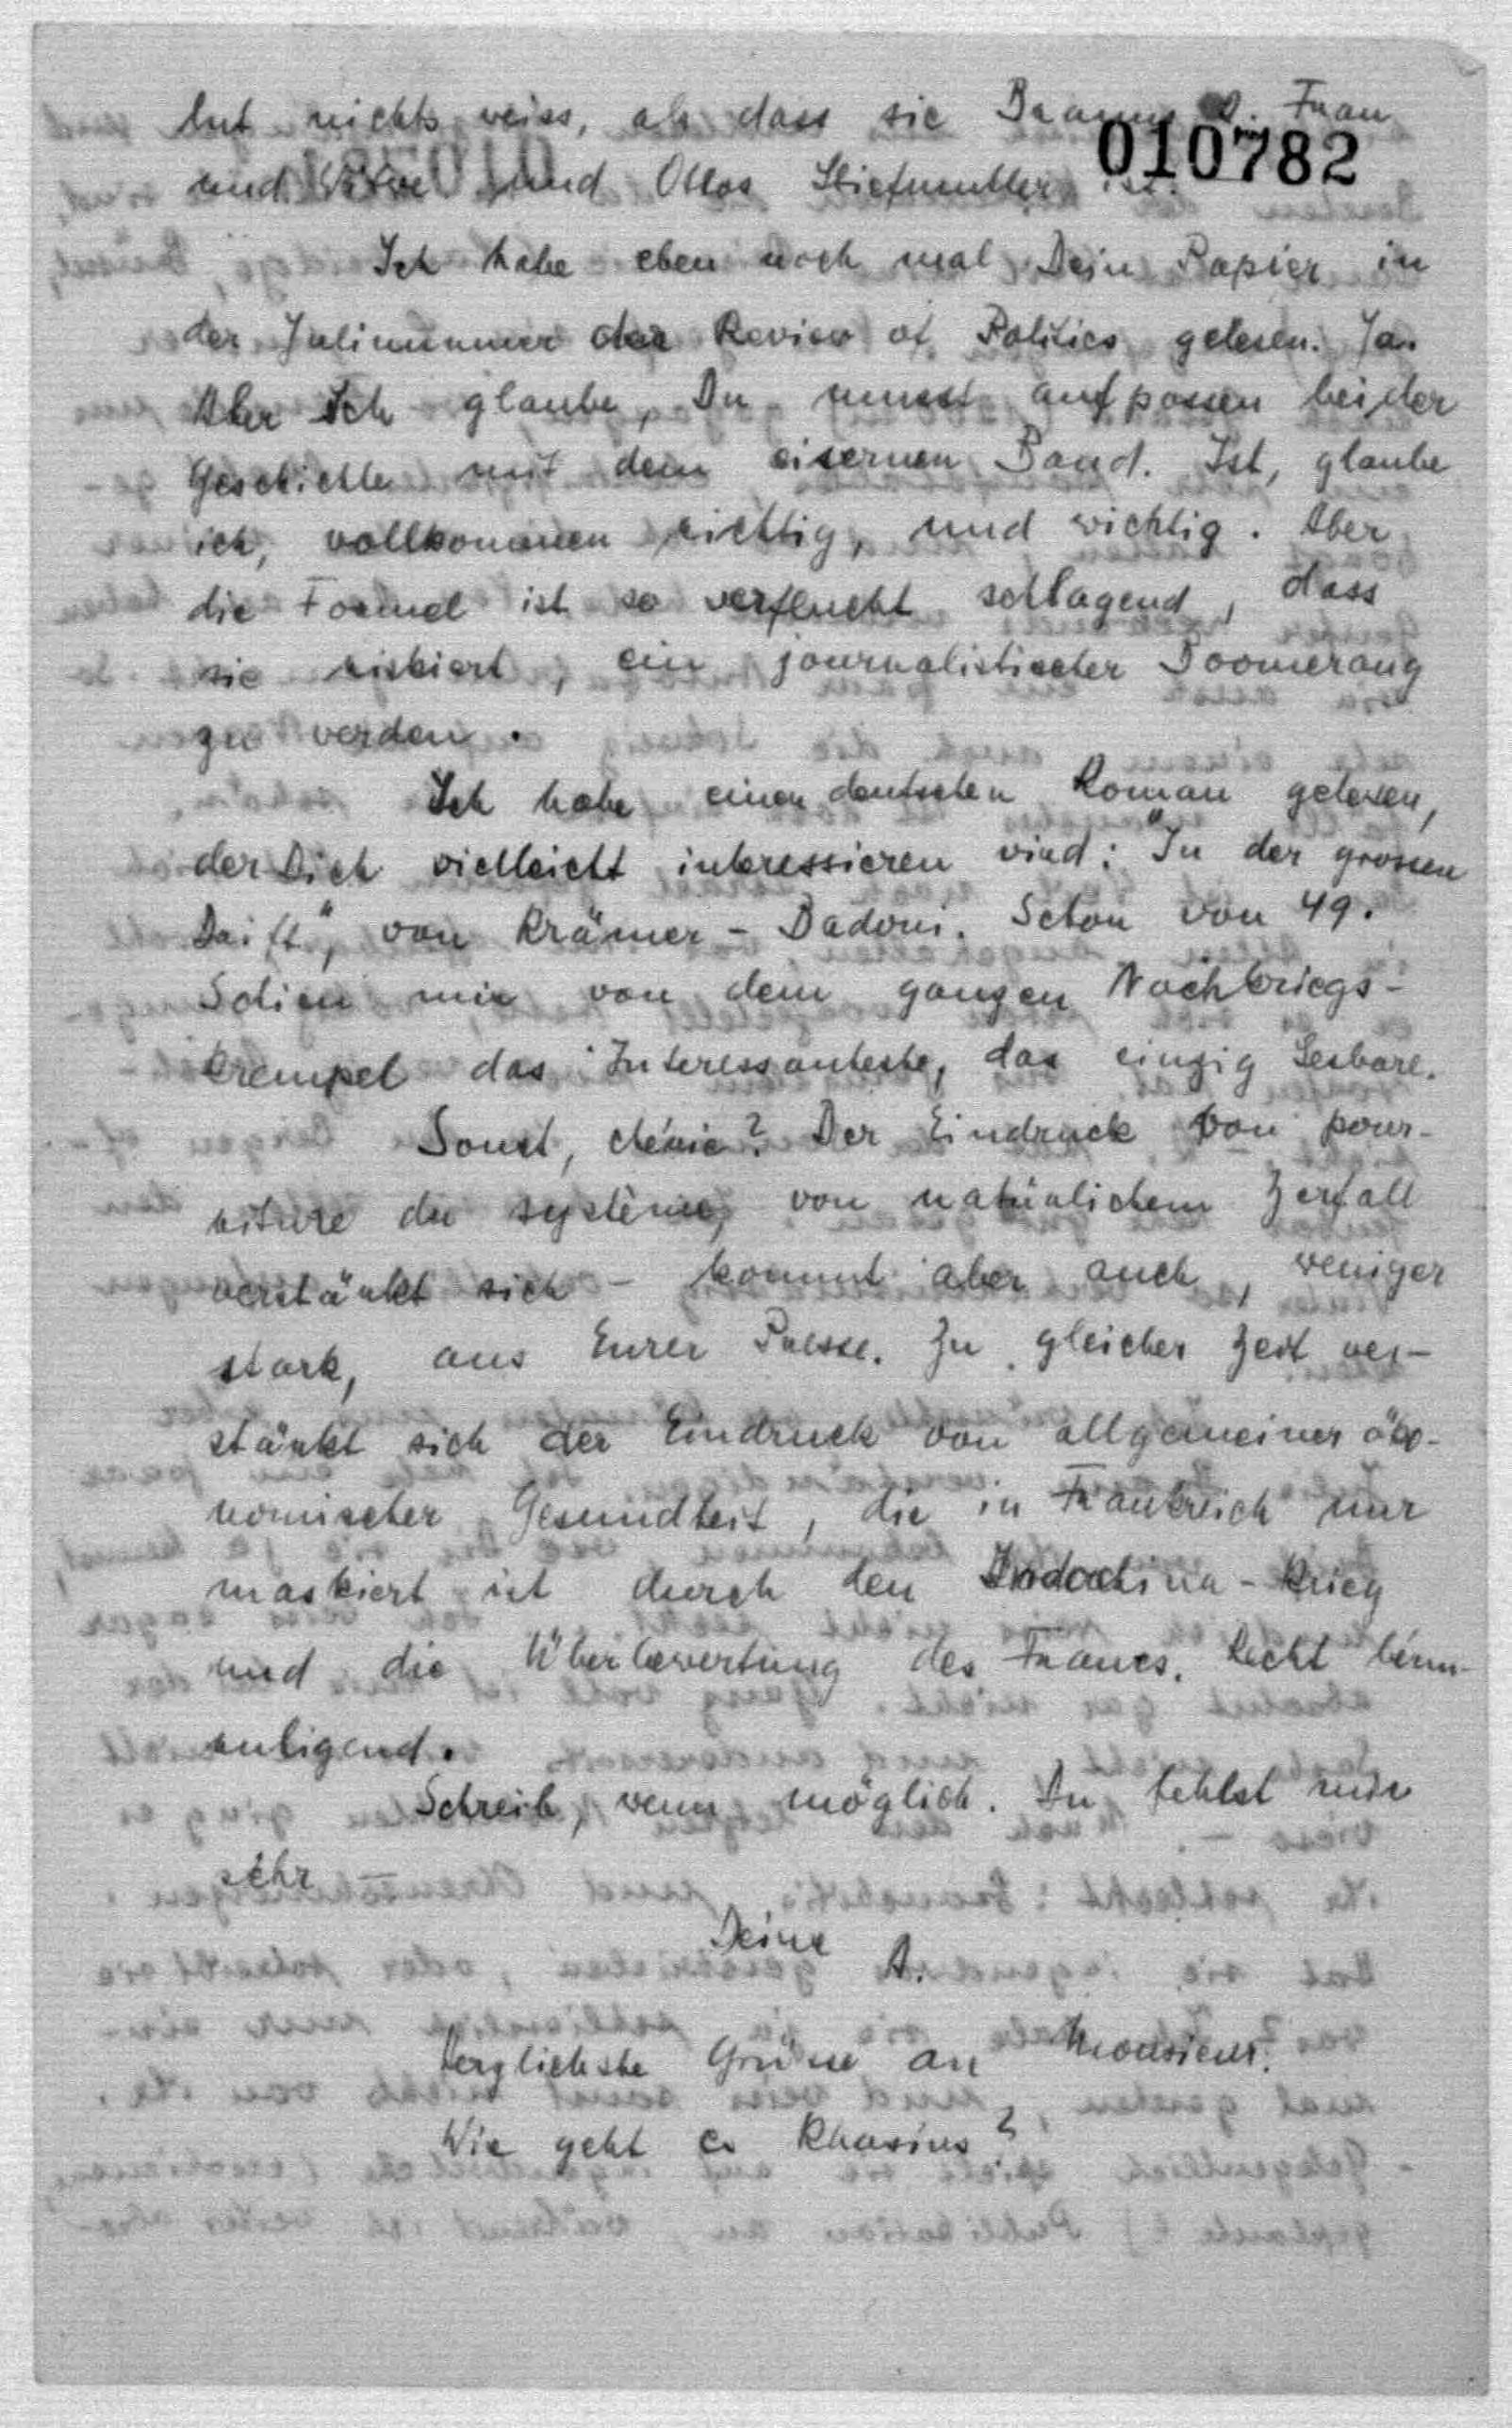 lut nichts weiss, als dass sie Brauns 2. Frau
010782
und Witwe und Ottos Stiefmutter ist.
Ich habe eben noch mal Dein Papier in
der Julinummer der Review of Politics gelesen. Ja.
Aber Ich glaube, Du musst aufpassen bei der
Geschichte mit dem eisernen Band. Ist, glaube
ich, vollkommen richtig, und wichtig. Aber
die Formel ist so verflucht schlagend, dass
sie riskiert, ein journalistischer Boomerang
zu werden.
Ich habe einen deutschen Roman gelesen,
der Dich vielleicht interessieren wird: "In der grossen
Drift", von Krämer-Badoni. Schon von 49.
Schien mir von dem ganzen Nachkriegs-
krempel das Interessanteste, das einzig Lesbare.
Sonst, chérie? Der Eindruck von pour-
riture du système, von natürlichem Zerfall
verstärkt sich - kommt aber auch, weniger
stark, aus Eurer Presse. Zu gleicher Zeit ver-
stärkt sich der Eindruck von allgemeiner öko-
nomischer Gesundheit, die in Frankreich nur
maskiert ist durch den Indochina-Krieg
und die Überbewertung des Francs. Recht beun-
ruhigend.
Schreib, wenn möglich. Du fehlst mir
sehr -
Deine
A.
Herzlichste Grüsse an Monsieur.
Wie geht es